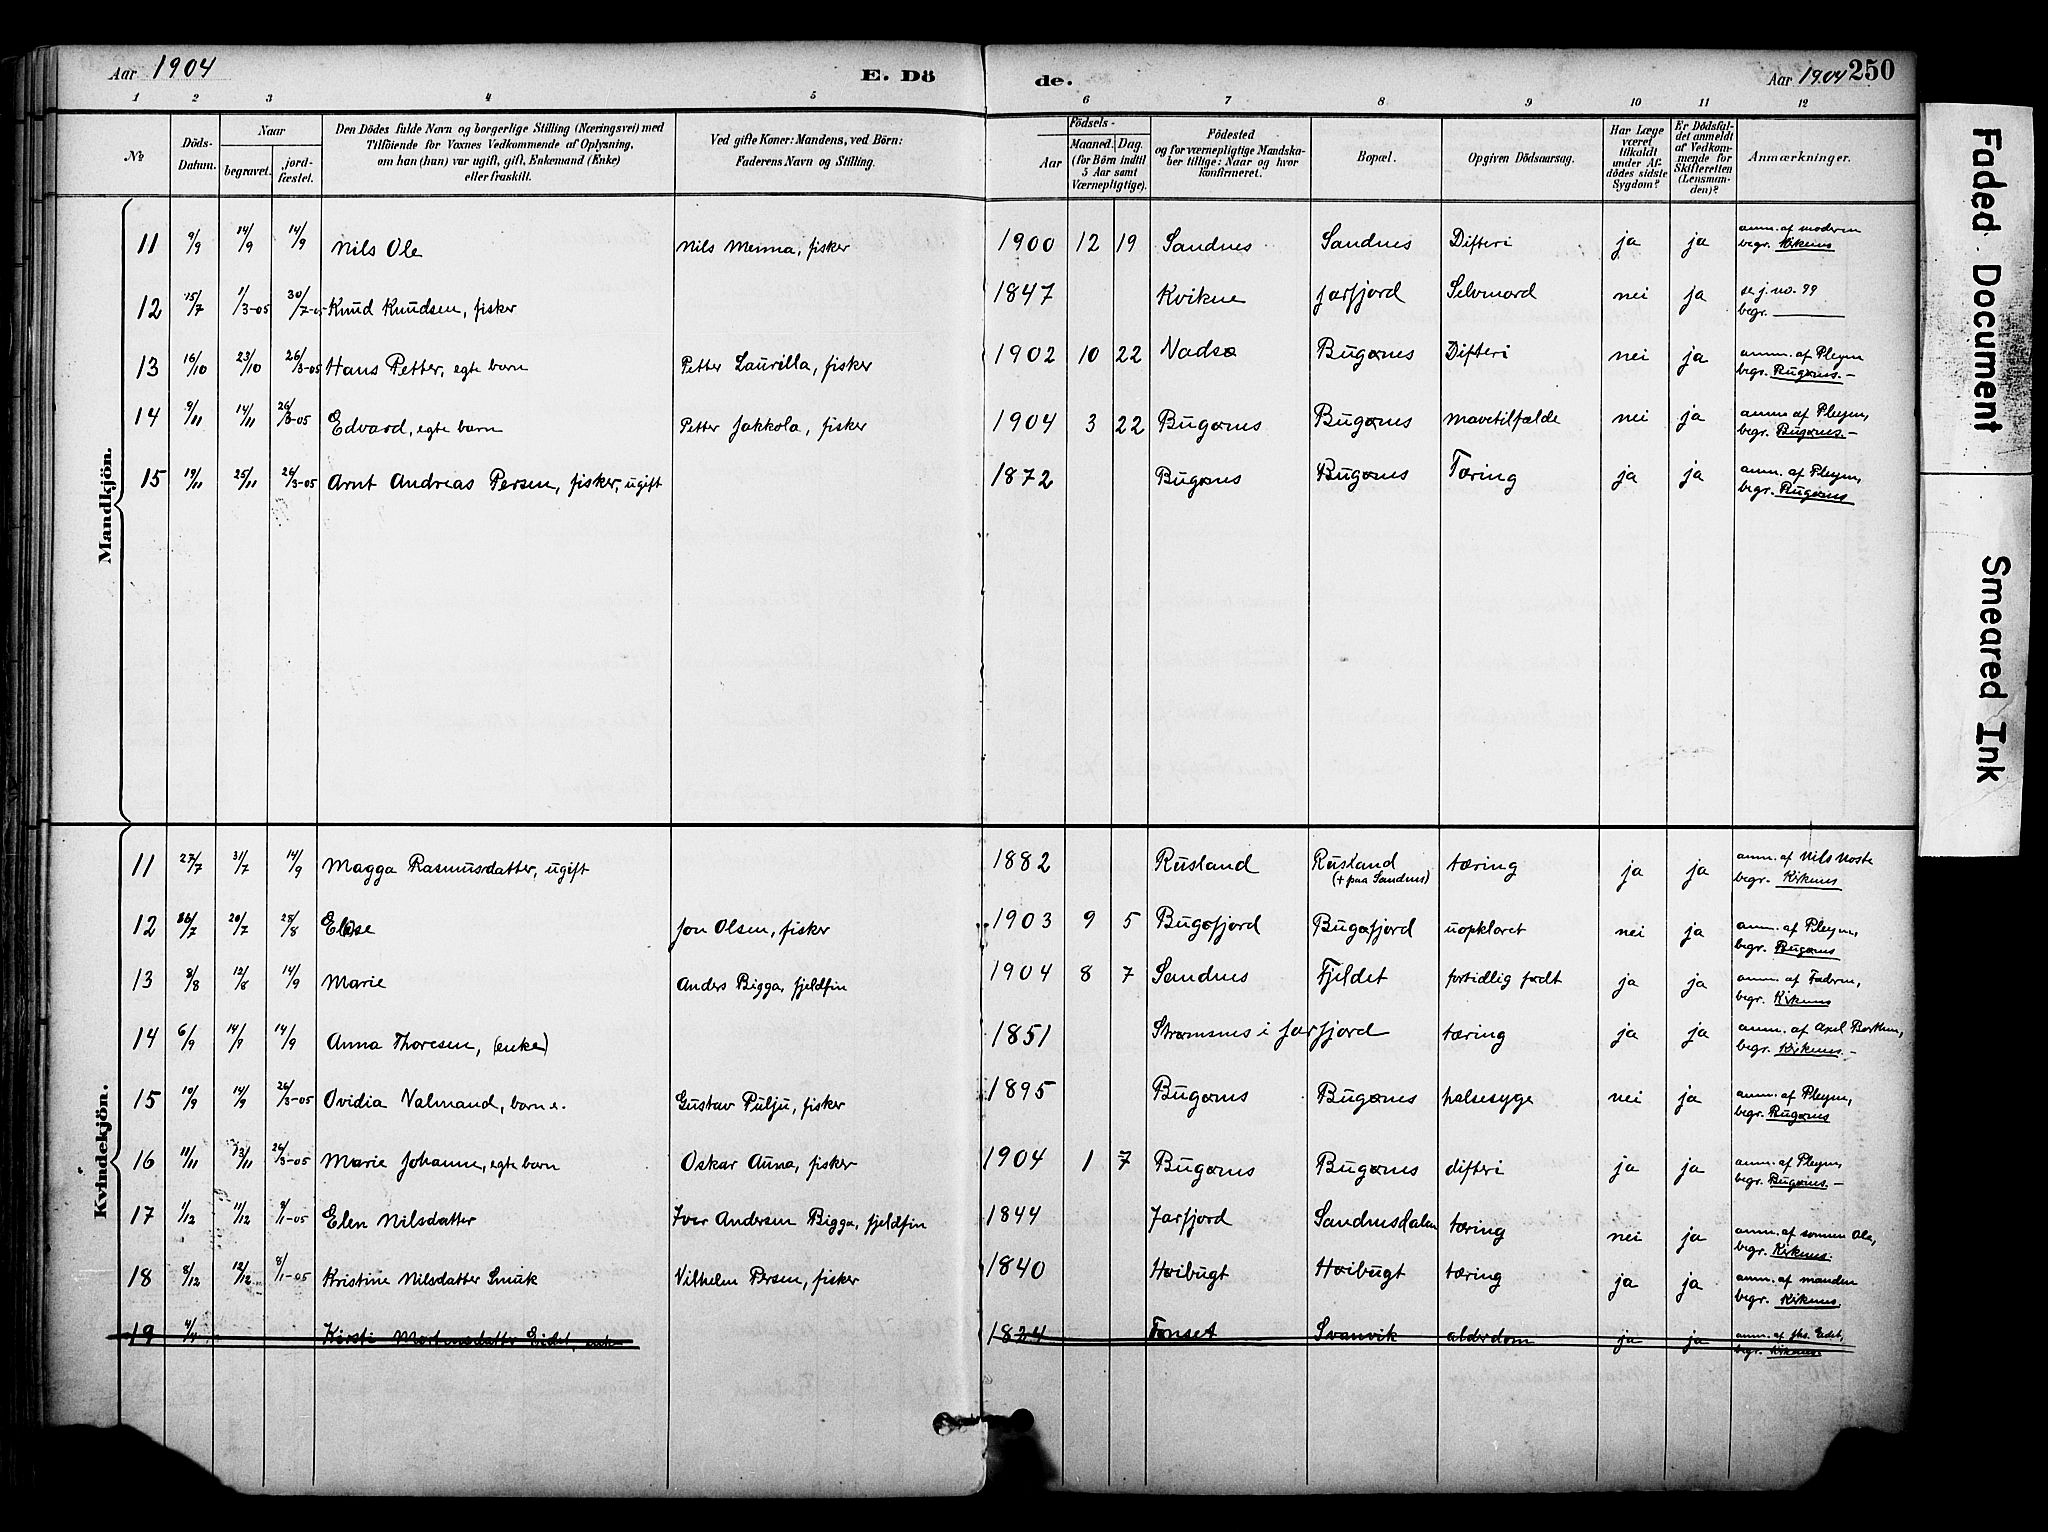 Aar 1904 E. Dö de. Aar 1904 250
1 2 3 4 5 6 7 8 9 10 11 12
№ Döds-Datum. Naar begravet. jord-fæstet. Den Dödes fulde Navn og borgerlige Stilling (Næringsvei) med Tilföiende for Voxnes Vedkommende af Oplysning, om han (hun) var ugift, gift, Enkemand (Enke) eller fraskilt. Ved gifte Koner: Mandens, ved Börn: Faderens Navn og Stilling. Födsels- Aar Maaned. Dag. (for Börn indtil 5 Aar samt Værnepligtige). Födested og for værnepligtige Mandskaber tillige: Naar og hvor konfirmeret. Bopæl. Opgiven Dödsaarsag. Har Læge været tilkaldt under Afdödes sidste Sygdom? Er Dödsfaldet anmeldt af Vedkommende for Skifteretten (Lensmanden)? Anmærkninger.
Mandkjön.
11 9/9 14/9 14/9 Nils Ole Nils Menna, fisker 1900 12 19 Sandnes Sandnes Difteri ja ja anm. af moderen begr. Kirkenes
12 15/7 1/3-05 30/7-05 Knud Knudsen, fisker 1847 Kvikne Jarfjord Selvmord nei ja se j. no. 99 begr.
13 16/10 23/10 26/3-05 Hans Petter, egte barn Petter Laurilla, fisker 1902 10 22 Vadsø Bugønes Difteri nei ja anm. af Pleym begr. Bugønes.-
14 9/11 14/11 26/3-05 Edvard, egte barn Petter Jakkola, fisker 1904 3 22 Bugønes Bugønes mavetilfælde nei ja anm. af Pleym, begr. Bugønes.-
15 19/11 25/11 26/3-05 Arnt Andreas Persen, fisker, ugift 1872 Bugønes Bugønes Tæring ja ja anm. af Pleym, begr. Bugønes
Kvindekjön.
11 27/7 31/7 14/9 Magga Rasmusdatter, ugift 1882 Rusland Rusland (+ paa Sandnes) tæring ja ja anm. af Nils Noste begr. Kirkenes
12 16/7 20/7 25/8 Jon Olsen, fisker 1903 9 5 Bugøfjord Bugøfjord uopklaret nei ja anm. af Pleym, begr. Bugønes
13 8/8 12/8 14/9 Marie Anders Bigga, fjeldfin 1904 8 7 Sandnes Fjeldet fortidlig født ja ja anm. af Faderen, begr. Kirkenes
14 6/9 14/9 14/9 Anna Thoresen, (enke) 1851 Strømsnes i Jarfjord tæring ja ja anm. af Axel Borthen, begr. Kirkenes.-
15 10/9 14/9 26/3-05 Ovidia Nalmand, barn e. Gustav Pulju, fisker 1895 Bugønes Bugønes halsesyge nei ja anm. af Pleym, begr. Bugønes
16 11/11 13/11 26/3-05 Marie Johanne, egte barn Oskar Auna, fisker 1904 1 7 Bugønes Bugønes difteri ja ja anm. af Pleym, begr. Bugønes.-
17 1/12 11/12 8/1-05 Elen Nilsdatter Iver Andersen Bigga, fjeldfin 1844 Jarfjord Sandnesdalen tæring nei ja anm. af sønnen Ole, begr. Kirkenes.
18 8/12 12/12 8/1-05 Kristine Nilsdatter Smuk Vilhelm Persen, fisker 1840 Høibugt Høibugt tæring ja ja anm. af manden begr. Kirkenes.
19 Kirsti Mortensdatter Eidet, enke 1824 Tønset Svanvik alderdom ja ja anm. af Eidet, begr. Kirkenes
Faded Document
Smeared Ink